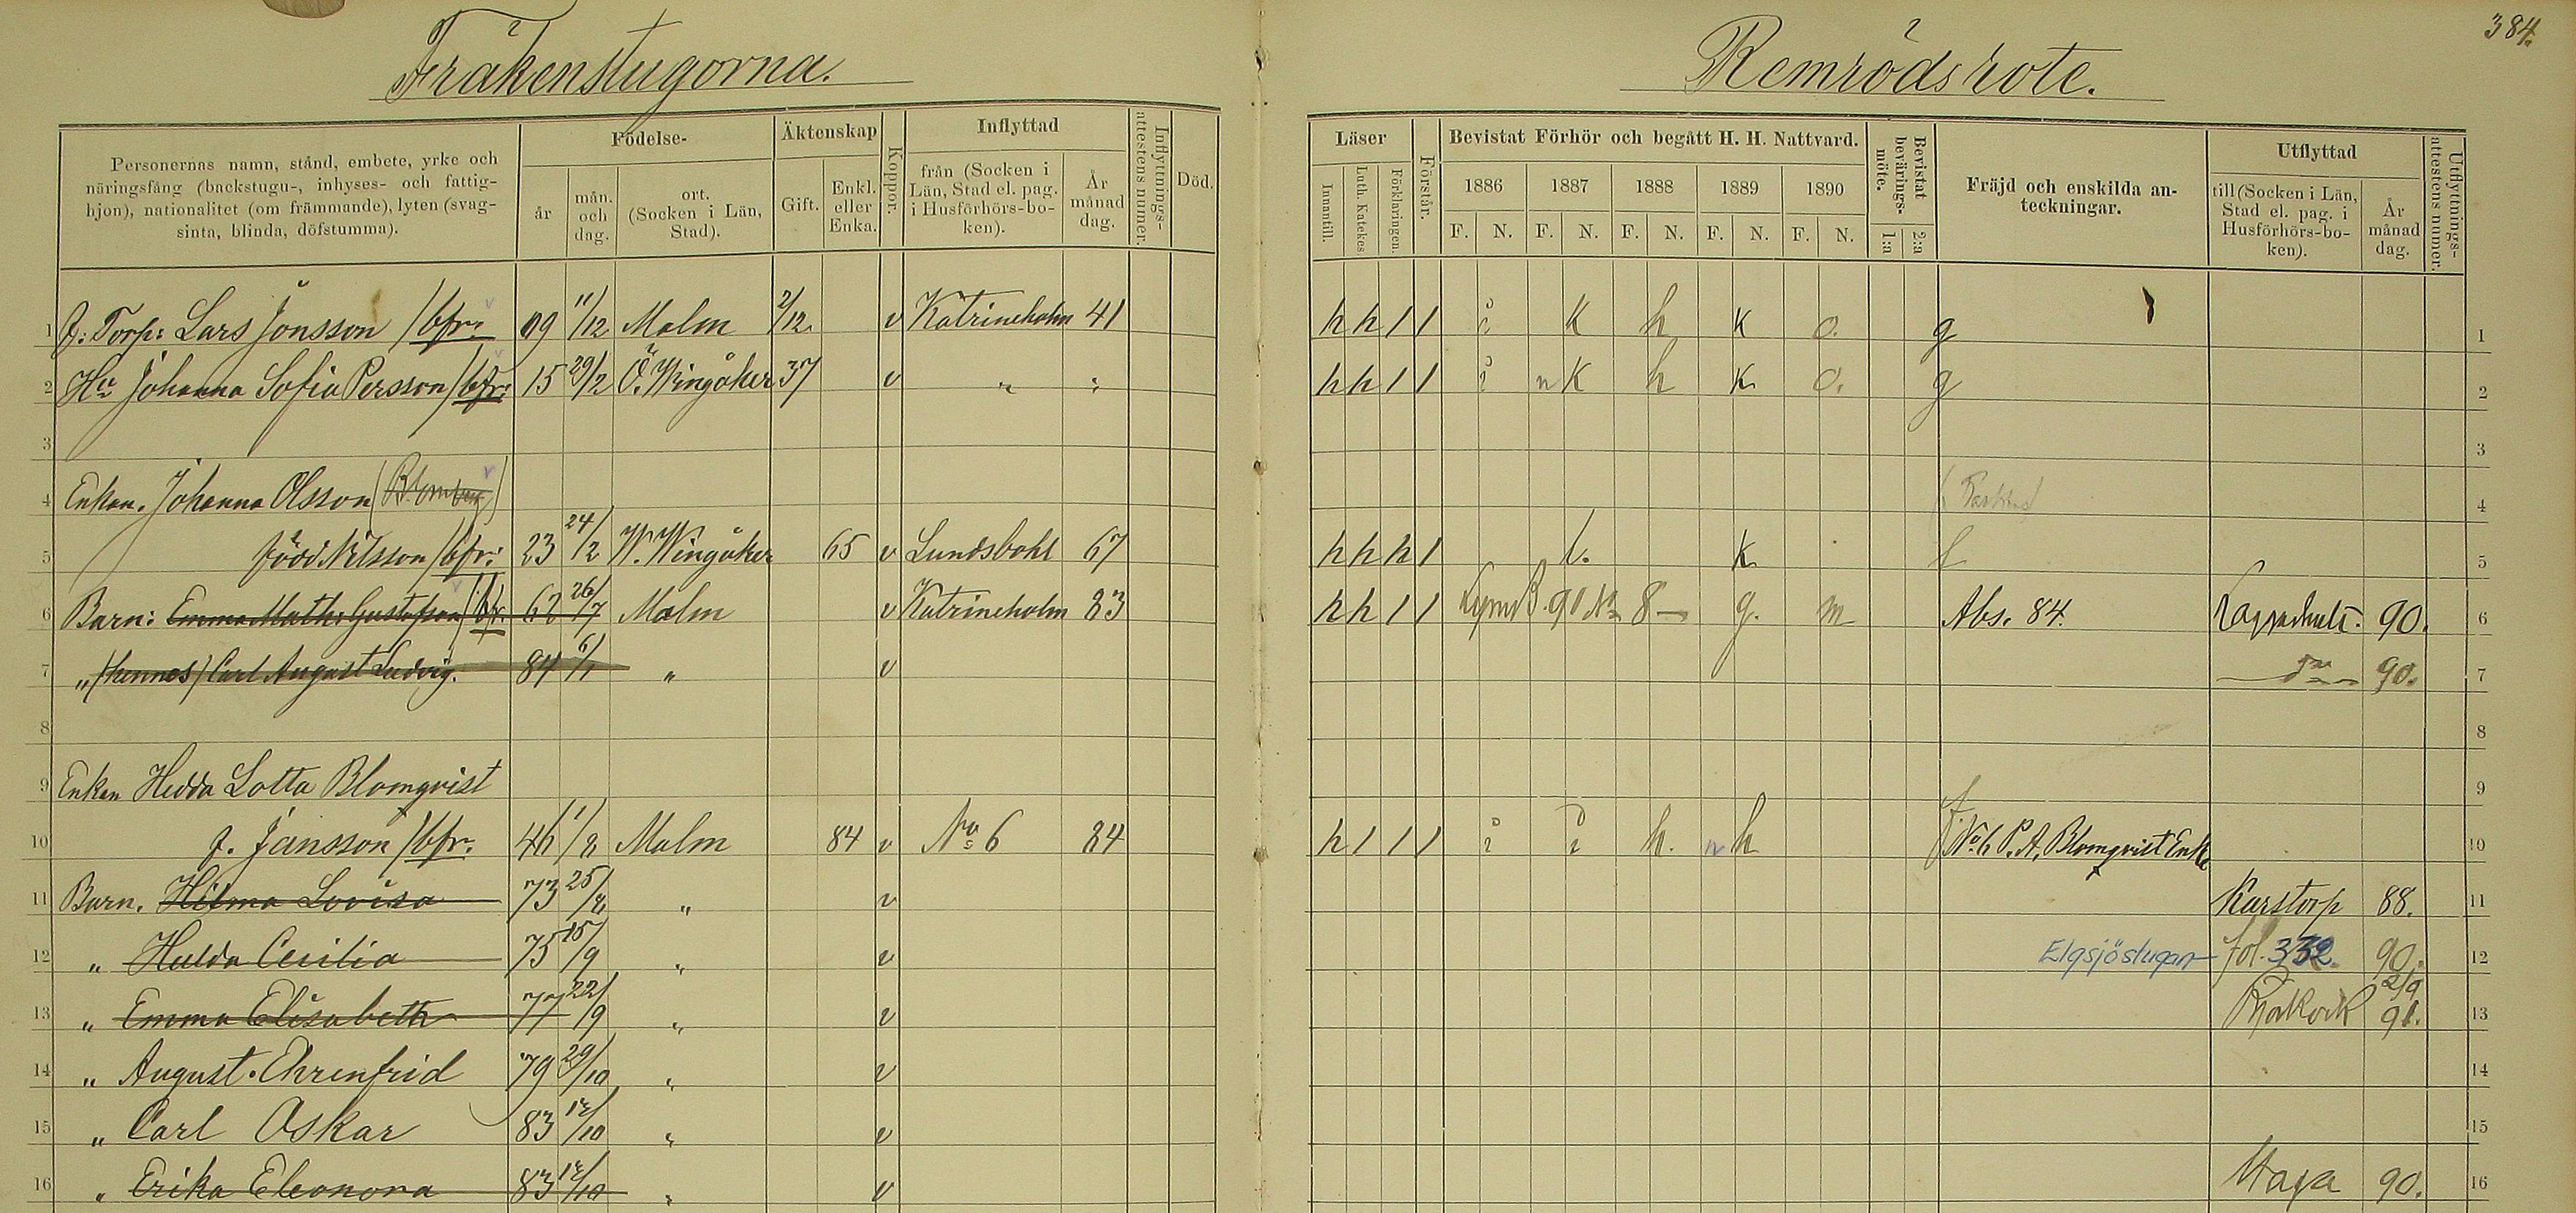 384.
Fräkenstugorna.
Remröds rote.
Personernas namn, stånd, embete, yrke och näringsfång (backstugu-, inhyses- och fattig-hjon), nationalitet (om främmande), lyten (svag-sinta, blinda, döfstumma).
Födelse-
år
mån. och dag.
ort. (Socken i Län, Stad).
Äktenskap
Gift.
Enkl. eller Enka.
Koppor.
Inflyttad
från (Socken i Län, Stad el. pag. i Husförhörs-bo-ken).
År månad dag.
Inflyttnings-attestens nummer.
Död.
Läser
Innantill.
Luth. Katekes
Förklaringen.
Förstår.
Bevistat Förhör och begått H. H. Nattvard.
1886 1887 1888 1889 1890
F. N. F. N. F. N. F. N. F. N.
Bevistat bevärings-möte.
1:a 2:a
Fräjd och enskilda an-teckningar.
Utflyttad
till (Socken i Län, Stad el. pag. i Husförhörs-bo-ken).
År månad dag.
Utflyttnings-attestens nummer.
1 f. Torp: Lars Jonsson /bfr. 09 11/12 Malm 2/12 v Katrineholm 41 h h 1 1 i k h k o. g 1
2 Hu Johanna Sofia Persson /bfr: 15 29/2 Ö. Wingåker 37 v " " h h 1 1 i n k h k o. g 2
3 3
4 Enkan. Johanna Olsson (Blomberg) 4
5 född Nilsson /bfr: 23 24/2 W. Wingåker 65 v Lundsbohl 67 h h h 1 k 5
6 Barn: Emma Math. Gustafsson /bfr. 62 26/7 Malm v Katrineholm 83 h h 1 1 90 8 g. m Abs. 84. 90. 6
7 " (hennes) Carl August Ludvig. 84 6/1 " v 90. 7
8 8
9 Enkan Hedda Lotta Blomqvist 9
10 f. Jansson /bfr. 46 1/8 Malm 84 v No 6 84 h 1 1 1 i i h. n h No 6 P. A. Blomqvist Enka 10
11 Barn. Hilma Lovisa 73 25/8 " v Karstorp 88. 11
12 " Hulda Cecilia 75 15/9 " v Elgsjöstugan fol. 332. 90. 12
13 " Emma Elisabeth 77 22/9 " v 91. 13
14 " August Ehrenfrid 79 29/10 " v 14
15 " Carl Oskar 83 12/10 " v 15
16 " Erika Eleonora 83 12/10 " v Haga 90. 16